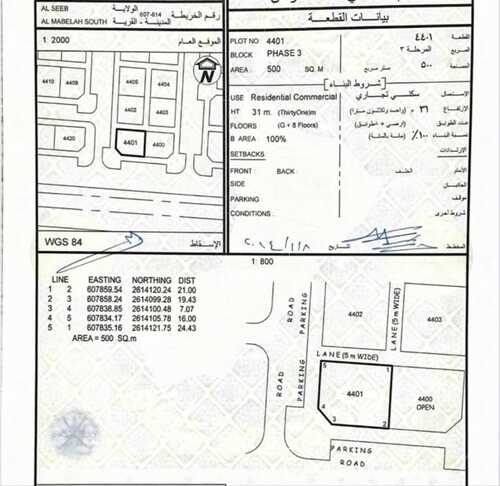 AL SEEB
الولاية
607-614
رقم الخريطة
AL MABELAH SOUTH
المدينة - القرية
1 2000
الموقع العام
N
4411
4409
4408
4405
4404
4402
4403
4420
4401
4400
WGS 84
الإسقاط
بيانات القطعة
PLOT NO 4401
٤٤٠١
القطعة
BLOCK PHASE 3
المرحلة ٣
المربع
AREA 500 SQ. M
٥٠٠
متر مربع
المساحة
شروط البناء
USE Residential Commercial
سكني تجاري
الإستعمال
HT 31 m. (ThirtyOne)m
٣١ م (واحد وثلاثون مترا)
الإرتفاع
FLOORS (G + 8 Floors)
عدد الطوابق
B AREA 100%
٪١٠٠ (مائة بالمائة)
نسبة البناء
SETBACKS
الإرتدادات
FRONT BACK
الخلف
الأمام
SIDE
الجانبان
PARKING
موقف
CONDITIONS
شروط أخرى
التاريخ
المخطط
1: 800
LINE EASTING NORTHING DIST
1 2 607859.54 2614120.24 21.00
2 3 607858.24 2614099.28 19.43
3 4 607838.85 2614100.48 7.07
4 5 607834.17 2614105.78 16.00
5 1 607835.16 2614121.75 24.43
AREA = 500 SQ.m
ROAD
PARKING
LANE (5 m WIDE)
4402
4403
LANE (5 m WIDE)
ROAD
PARKING
5
1
4401
4
3
2
4400
OPEN
PARKING
ROAD